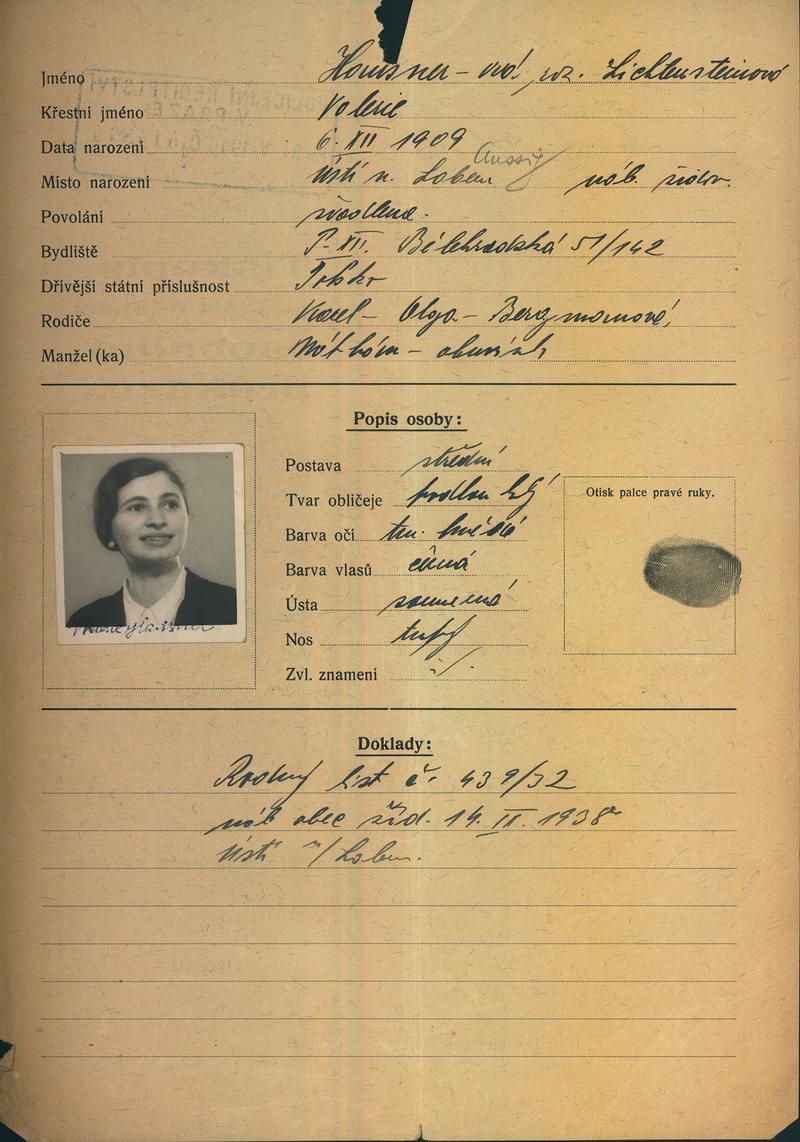 Jméno Hausner-ová roz. Lichtensteinová
Křestní jméno Valerie
Datum narození 6. XII 1909
Aussig
Místo narození Ústí n. Labem náb. židov.
Povolání švadlena.
Bydliště P. XII. Bělehradská 51/142
Dřívější státní příslušnost
Rodiče Karel - Olga - Bergmannová,
Manžel(ka) - obuvník
Popis osoby:
Postava střední
Tvar obličeje podlouhlý
Otisk palce pravé ruky.
Barva očí tm. hnědé
Barva vlasů černá
Ústa souměrná
Nos tupý
Zvl. znamení ./.
Doklady:
Rodný list č. 439/32
náb obec žid. 14. II. 1938
Ústí n/Labem.